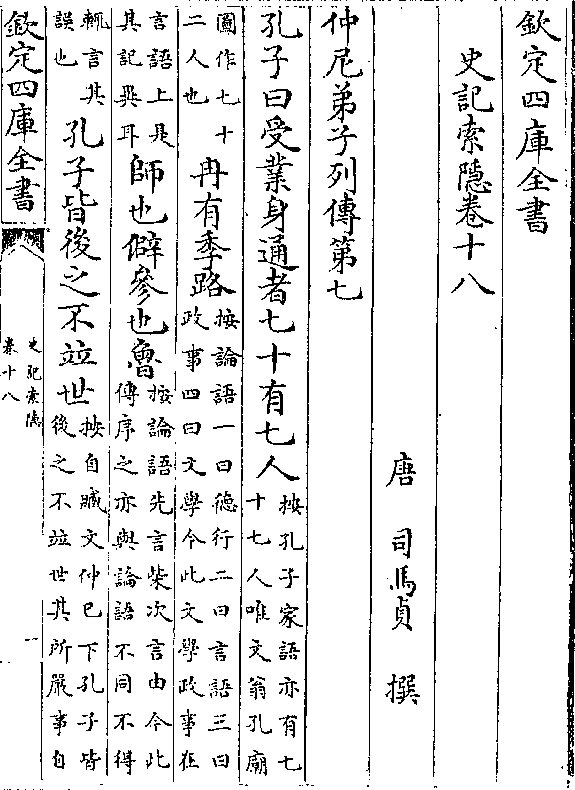 欽定四庫全書
史記索隱卷十八
唐 司馬貞 撰
仲尼弟子列傳第七
孔子曰受業身通者七十有七人 按孔子家語亦有七十七人唯文翁孔廟
圖作七十二人也 冉有季路 按論語一曰徳行二曰言語三曰政事四曰文學今此文學政事在
言語上是其記異耳 師也僻參也魯 按論語先言柴次言由今此傳序之亦與論語不同不得
輒言其誤也 孔子皆後之不竝世 按自臧文仲已下孔子皆後之不竝世其所嚴事自
欽定四庫全書 史記索隱 卷十八 一